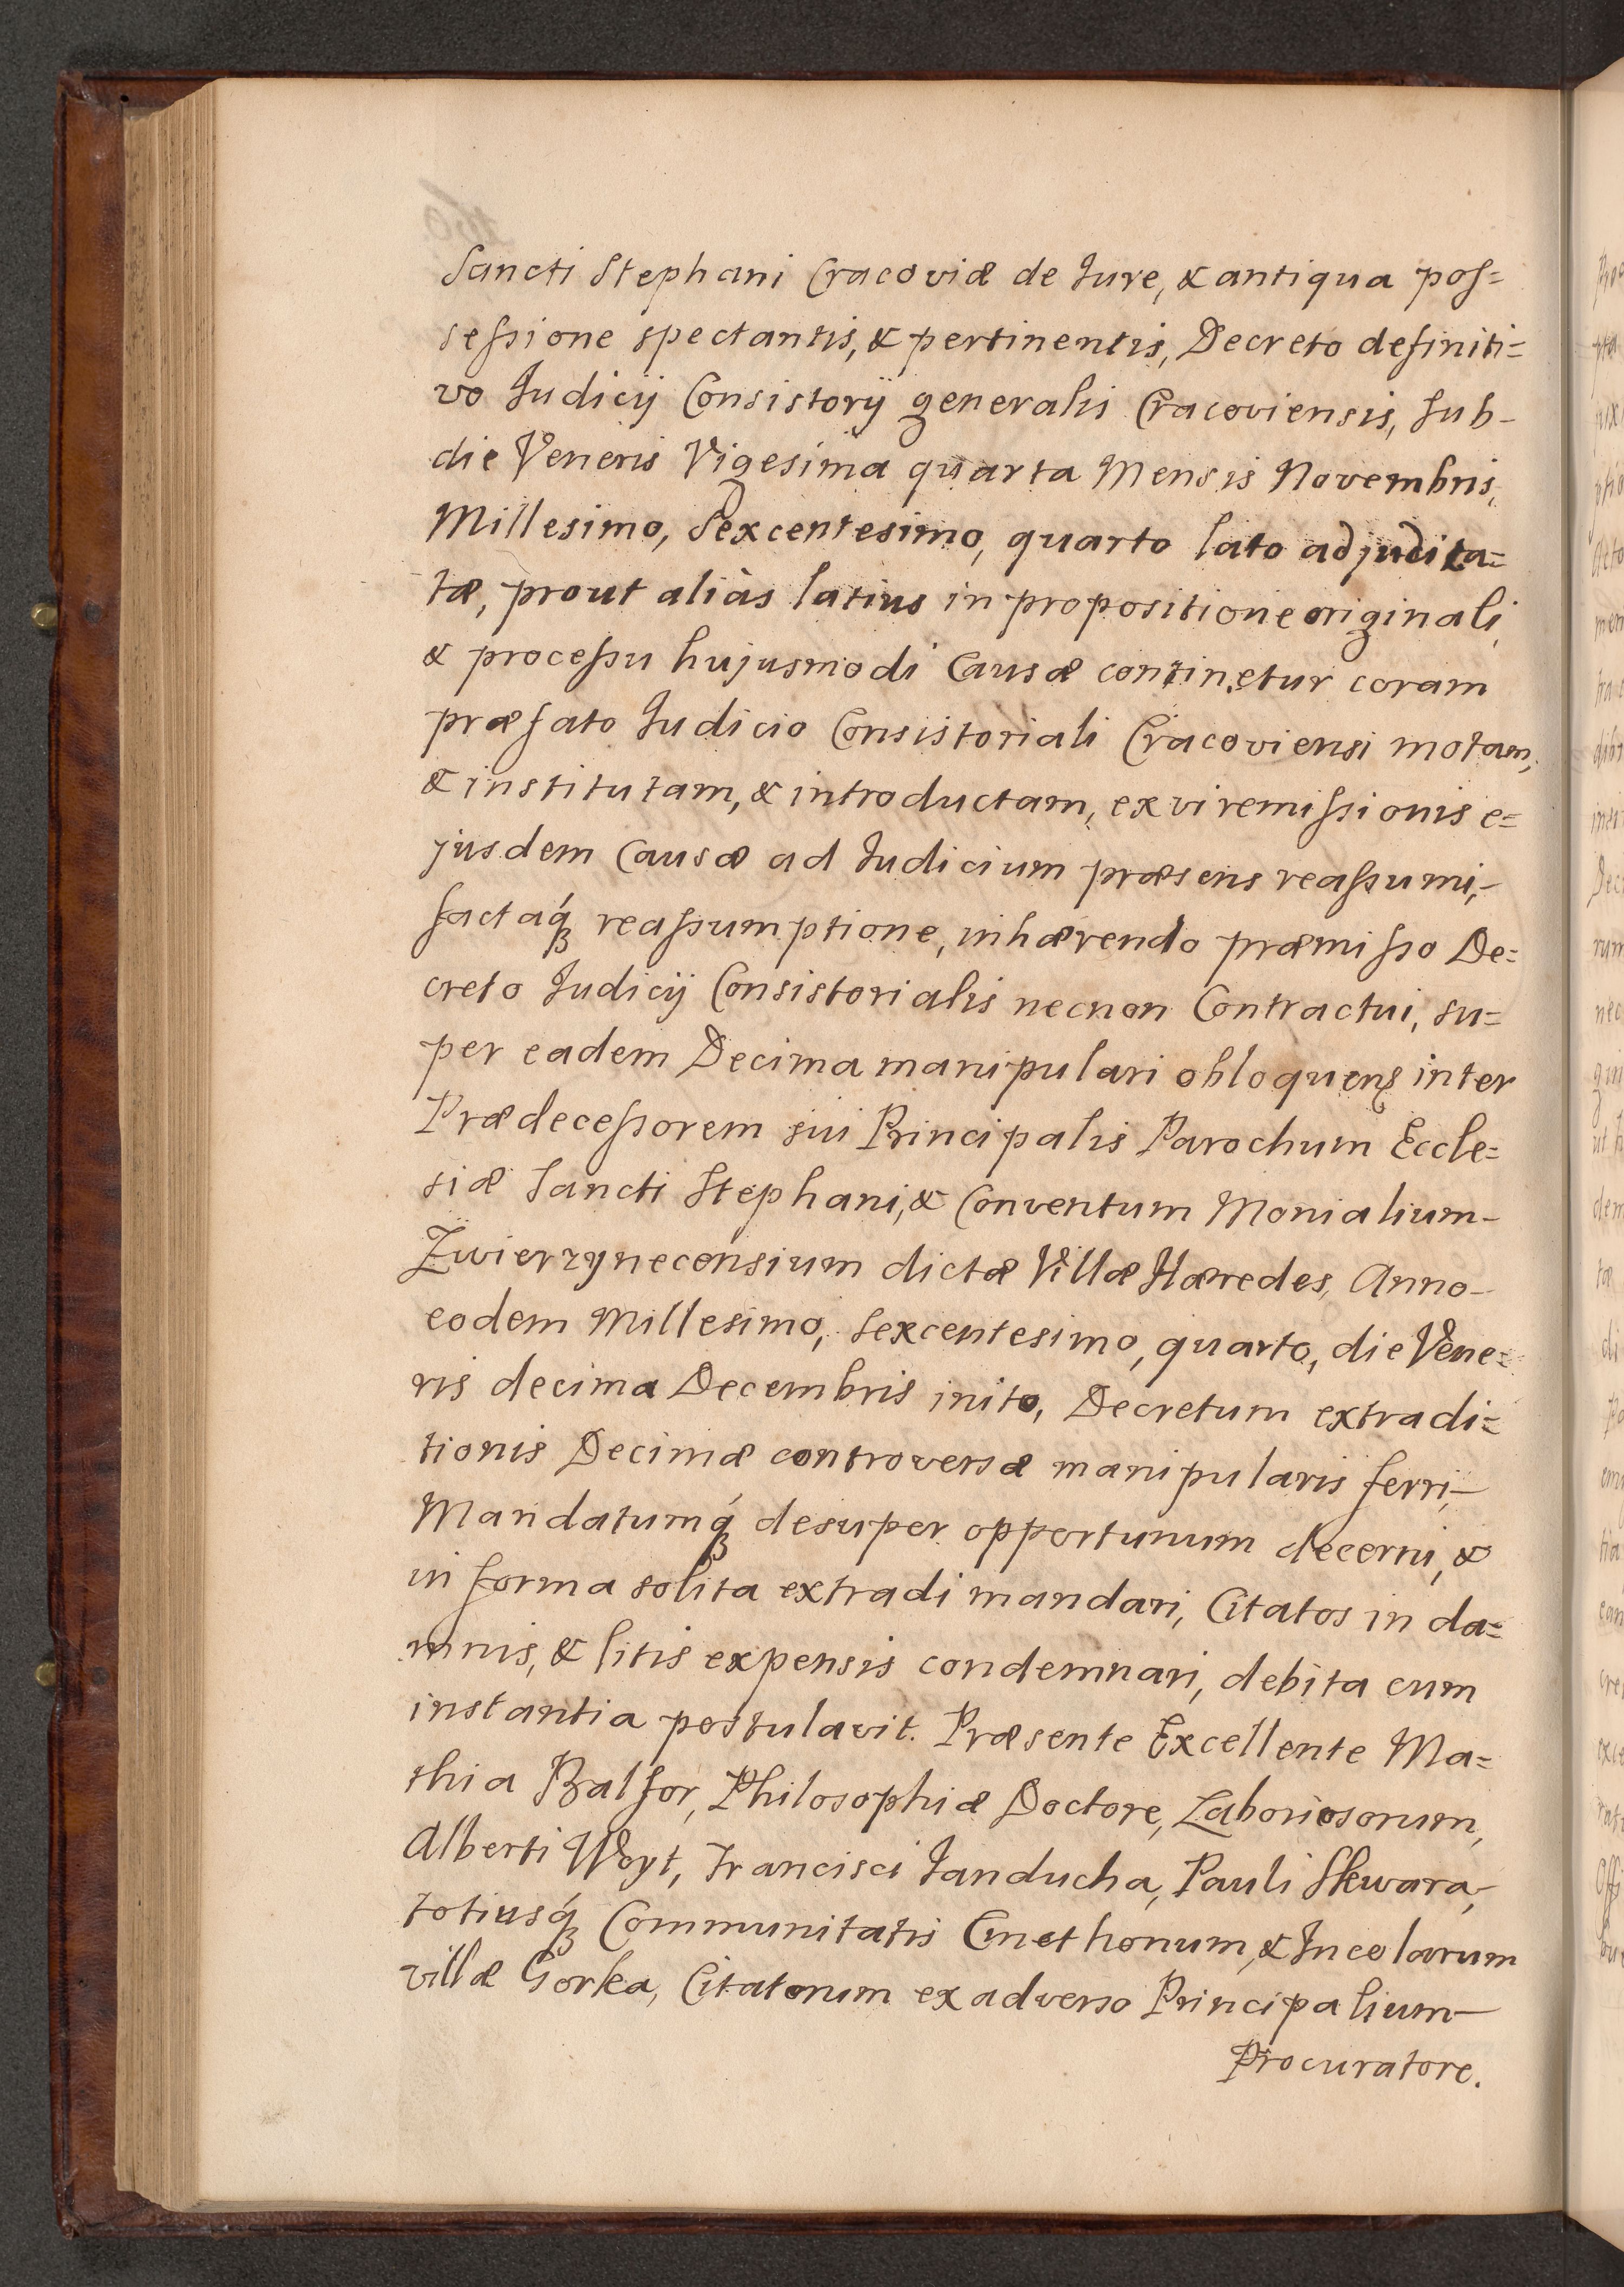 Sancti Stephani Cracoviæ de Iure, & antiqua pos=
sessione spectantis, & pertinentis, Decreto definiti=
vo Iudicij Consistorij generalis Cracoviensis, sub-
die Veneris Vigesima quarta Mensis Novembris,
Millesimo, Sexcentesimo, quarto lato adjudica=
tæ, prout aliàs latius in propositione originali,
& processu hujusmodi Causæ continetur coram
præfato Iudicio Consistoriali Cracoviensi motam,
& institutam, & introductam, ex vi remissionis e=
jusdem Causæ ad Iudicium præsens reassumi,-
factaq́ꝫ reassumptione, inhærendo præmisso De=
creto Iudicij Consistorialis necnon Contractui, su=
per eadem Decima manipulari obloquenꝭ inter
Prædecessorem sui Principalis Parochum Eccle=
siæ Sancti Stephani, & Conventum Monialium-
Zwierzynecensium dictæ Villæ Hæredes, Anno-
eodem Millesimo, Sexcentesimo, quarto, die Vene=
ris decima Decembris inito, Decretum extradi=
tionis Decimæ controversæ manipularis ferri,-
Mandatumq́ꝫ desuper opportunum decerni, &
in forma solita extradi mandari, Citatos in da=
mnis, & litis expensis condemnari, debita cum
instantia postulavit. Præsente Excellente Ma=
thia Balsor, Philosophiæ Doctore, Laboriosorum,
Alberti Woyt, Francisci Janducha, Pauli Skwara,
totiusq́ꝫ Communitatis Cmethonum, & Incolarum
villæ Gorka, Citatorum ex adverso Principalium-
Procuratore.